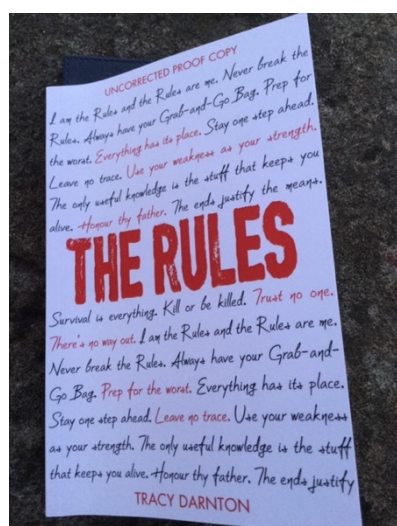 UNCORRECTED PROOF COPY
I am the Rules and the Rules are me. Never break the
Rules. Always have your Grab-and-Go Bag. Prep for
the worst. Everything has its place. Stay one step ahead.
Leave no trace. Use your weakness as your strength.
The only useful knowledge is the stuff that keeps you
alive. Honour thy father. The ends justify the means.
THE RULES
Survival is everything. Kill or be killed. Trust no one.
There's no way out. I am the Rules and the Rules are me.
Never break the Rules. Always have your Grab-and-
Go Bag. Prep for the worst. Everything has its place.
Stay one step ahead. Leave no trace. Use your weakness
as your strength. The only useful knowledge is the stuff
that keeps you alive. Honour thy father. The ends justify
TRACY DARNTON